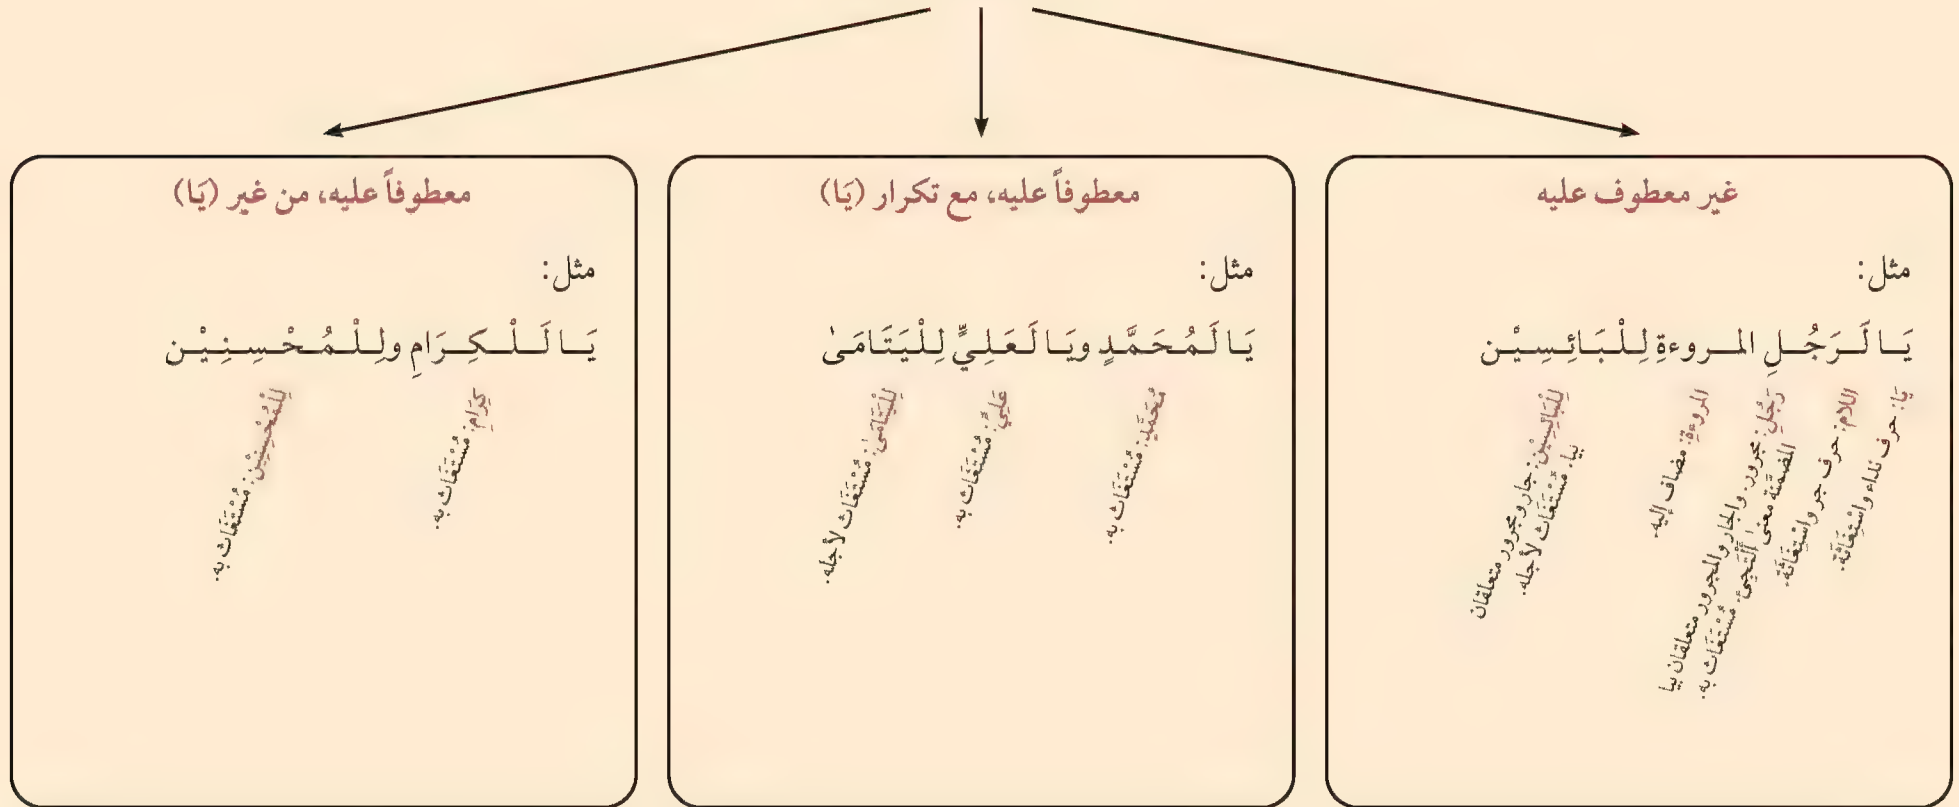 غير معطوف عليه
مثل:
يَا لَرَجُلِ المروءةِ لِلْبَائِسِيْن
يَا: حرف نداء واسْتِغَاثَة.
اللام: حرف جر واسْتِغَاثَة.
رَجُلِ: مجرور. والجار والمجرور متعلقان بيا
المضمَّنة معنى أَلْتَجِئُ. مُسْتَغَاث به.
المروءةِ: مضاف إليه.
لِلْبَائِسِيْن: جار ومجرور متعلقان
بيا. مُسْتَغَاث لأجله.
معطوفاً عليه، مع تكرار (يَا)
مثل:
يَا لَمُحَمَّدٍ ويَا لَعَلِيٍّ لِلْيَتَامَىٰ
مُحَمَّدٍ: مُسْتَغَاث به.
عَلِيٍّ: مُسْتَغَاث به.
لِلْيَتَامَىٰ: مُسْتَغَاث لأجله.
معطوفاً عليه، من غير (يَا)
مثل:
يَا لَلْكِرَامِ ولِلْمُحْسِنِيْن
كِرَامِ: مُسْتَغَاث به.
لِلْمُحْسِنِيْن: مُسْتَغَاث به.